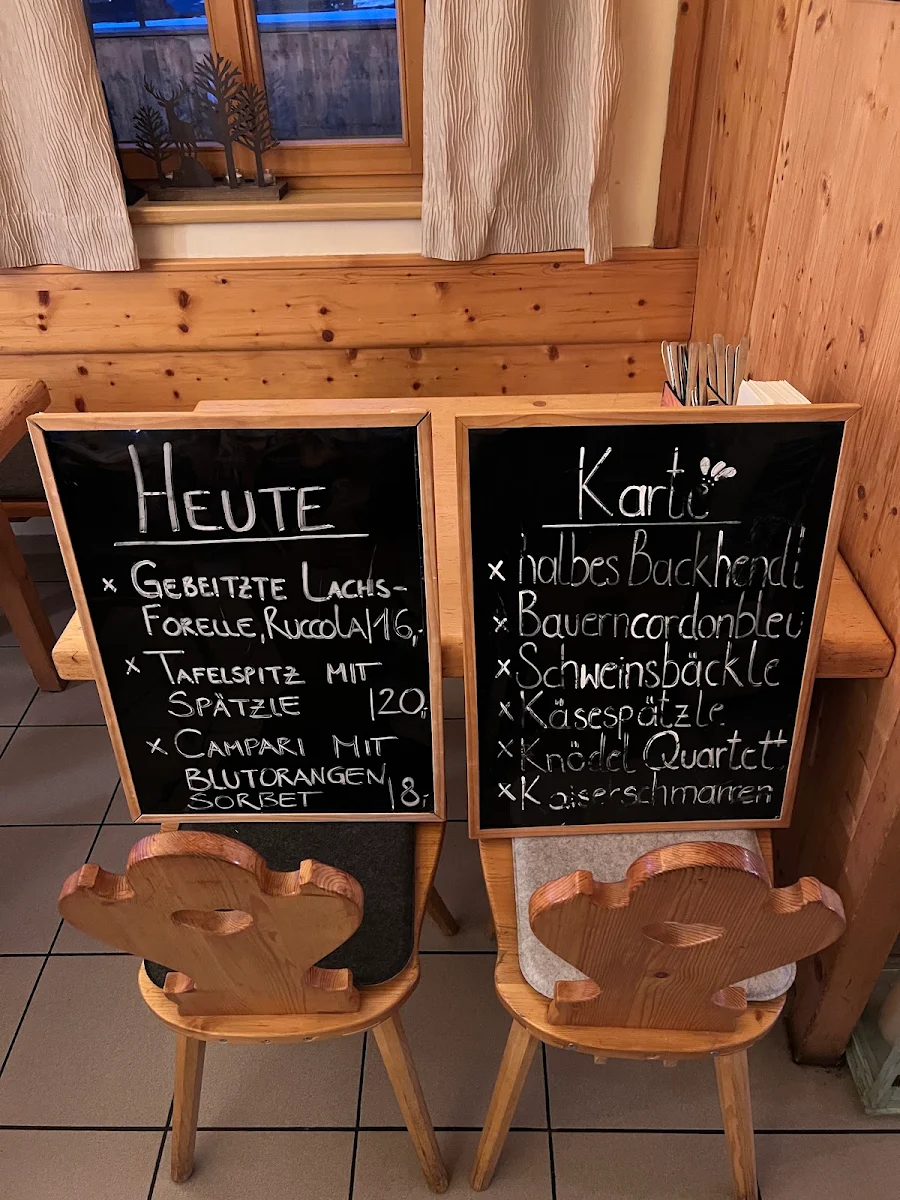 HEUTE
x GEBEITZTE LACHS-
FORELLE, RUCCOLA/16,-
x TAFELSPITZ MIT
SPÄTZLE |20,-
x CAMPARI MIT
BLUTORANGEN
SORBET |8,-
Karte
x halbes Backhendl
x Bauerncordonbleu
x Schweinsbäckle
x Käsespätzle
x Knödel Quartett
x Kaiserschmarren